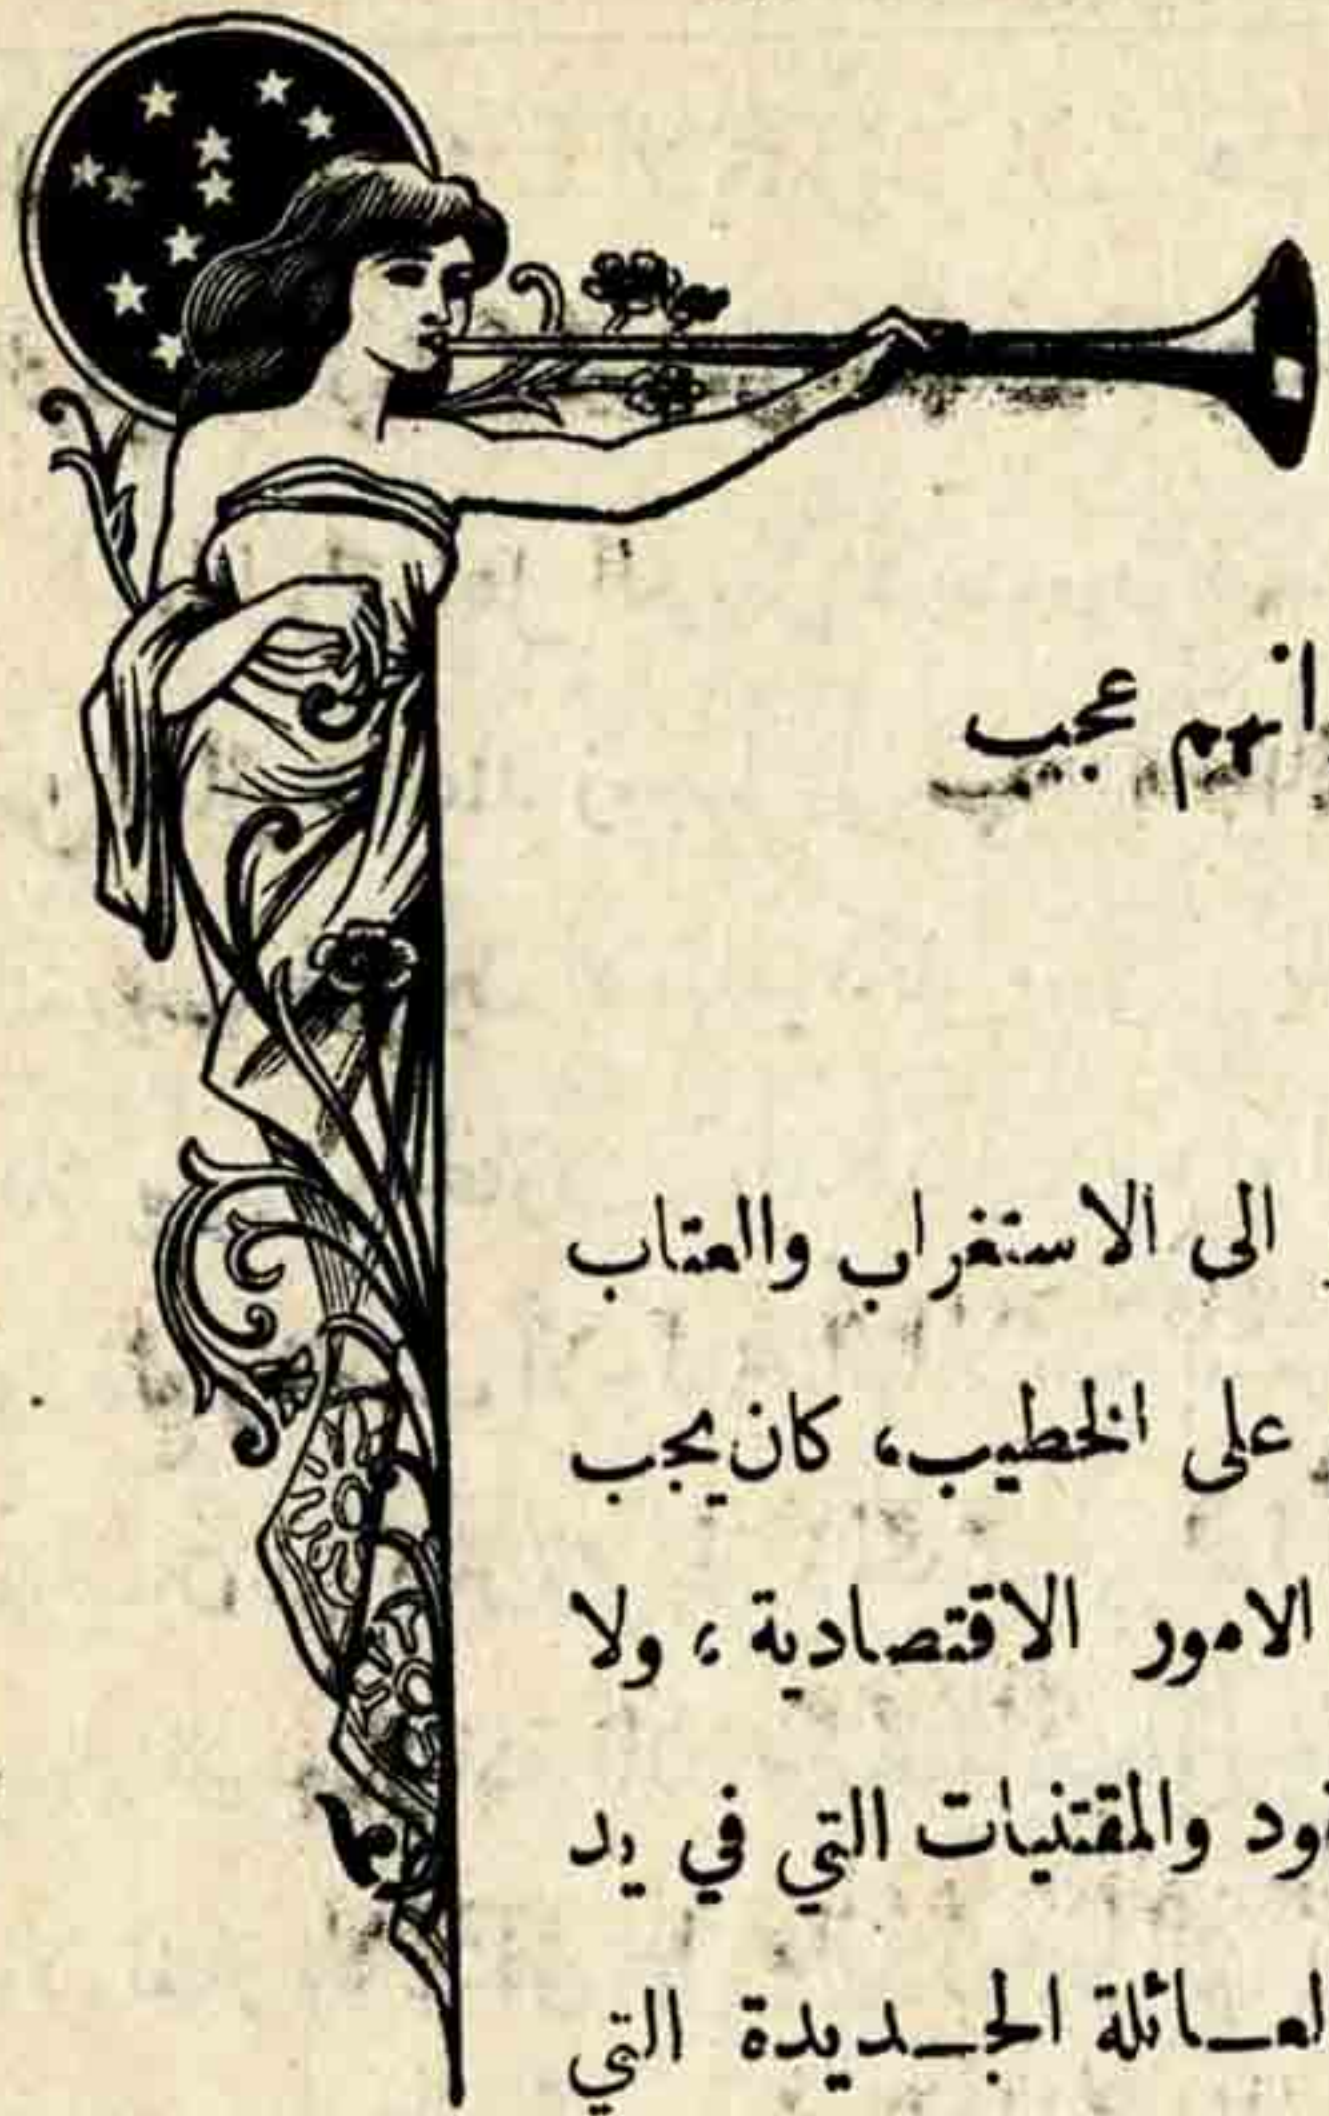 انهم عجيب
الى الاستغراب والعتاب
على الخطيب، كان يجب
الامور الاقتصادية، ولا
والمقتنيات التي في يد
الجـديدة التي